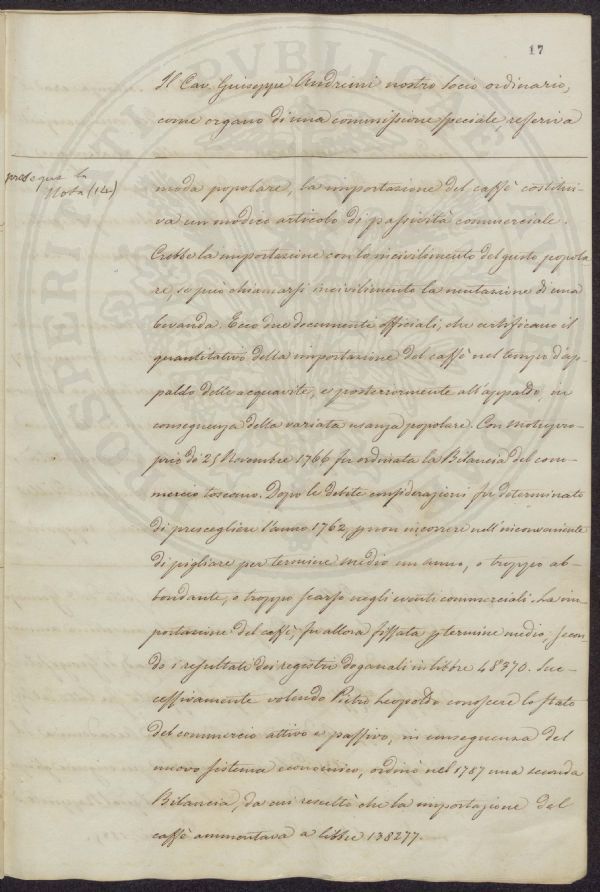 17
Il Cav. Giuseppe Andreini nostro Socio ordinario,
come organo di una commissione speciale, referiva
prosegue la
Nota (14)
moda popolare, la importazione del caffè costitui-
va un modico articolo di passività commerciale.
Crebbe la importazione con lo incivilimento del gusto popola
re, se può chiamarsi incivilimento la mutazione di una
bevanda. Ecco due documenti officiali, che certificano il
quantitativo della importazione del caffè nel tempo d'ap-
palto delle acquavite, e posteriormente all'appalto, in
conseguenza della variata usanza popolare. Con Motupro-
prio di 25 Novembre 1766 fu ordinata la Bilancia del com-
mercio toscano. Dopo le debite considerazioni fu determinato
di prescegliere l'anno 1762, p non incorrere nell'inconveniente
di pigliare per termine medio un anno, o troppo ab-
bondante, o troppo scarso negli eventi commerciali. La im-
portazione del caffè, fu allora fissata p termine medio, secon-
do i resultati dei registri doganali in libbre 48370. Suc-
cessivamente volendo Pietro Leopoldo conoscere lo stato
del commercio attivo e passivo, in conseguenza del
nuovo sistema economico, ordinò nel 1787 una seconda
Bilancia, da cui rescultò che la importazione del
caffè ammontava a libbre 138277.
PROSPERITATI PVBLICAE